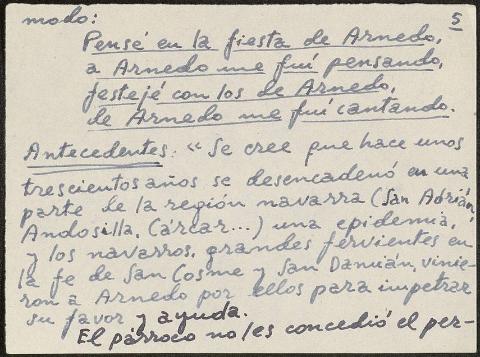 modo: 5
Pensé en la fiesta de Arnedo,
a Arnedo me fuí pensando,
festejé con los de Arnedo,
de Arnedo me fuí cantando.
Antecedentes: "Se cree que hace unos
trescientos años se desencadenó en una
parte de la región navarra (San Adrián,
Andosilla, Cárcar...) una epidemia,
y los navarros, grandes fervientes en
la fe de San Cosme y San Damián, vinie-
ron a Arnedo por ellos para impetrar
su favor y ayuda.
El párroco no les concedió el per-